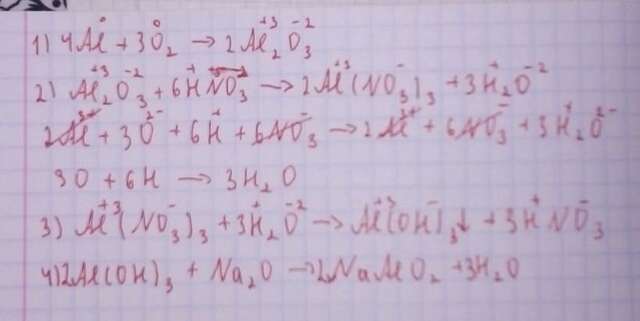 1) 4Al⁰ + 3O₂⁰ → 2Al₂⁺³O₃⁻²
2) Al₂⁺³O₃⁻² + 6H⁺NO₃⁻ → 2Al⁺³(NO₃⁻)₃ + 3H₂⁺O⁻²
2Al³⁺ + 3O²⁻ + 6H⁺ + 6NO₃⁻ → 2Al³⁺ + 6NO₃⁻ + 3H₂⁺O²⁻
3O + 6H → 3H₂O
3) Al⁺³(NO₃⁻)₃ + 3H₂⁺O⁻² → Al⁺³(OH⁻)₃↓ + 3H⁺NO₃⁻
4) 2Al(OH)₃ + Na₂O → 2NaAlO₂ + 3H₂O